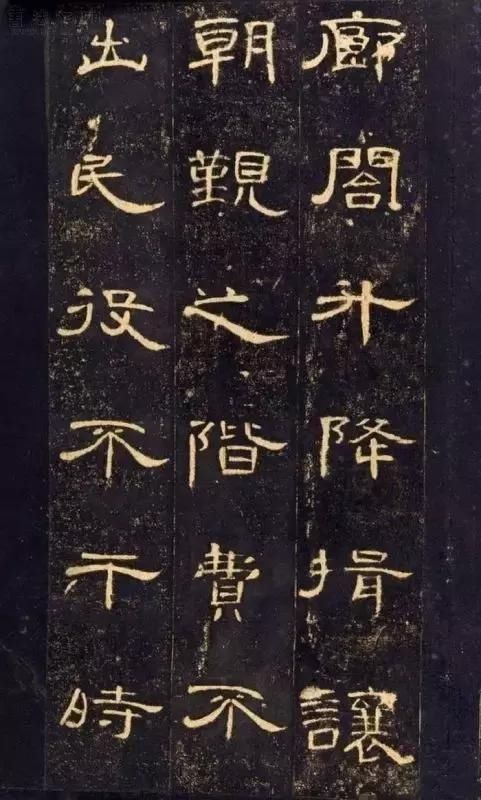 廊閣升降揖讓
朝覲之階費不
出民役不干時